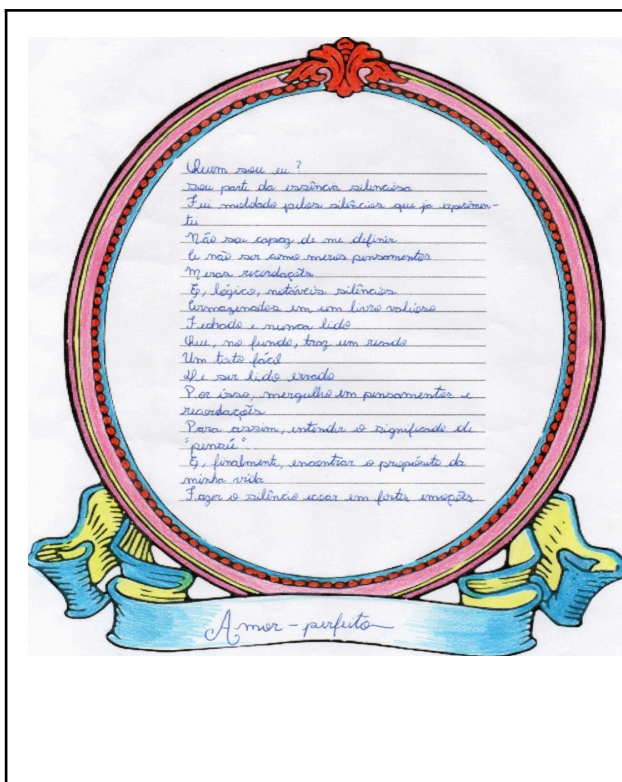 Quem sou eu?
sou parte da essência silenciosa
Fui moldado pelos silêncios que já experimen-
tei
Não sou capaz de me definir
A não ser como meros pensamentos
Meras recordações
E, lógico, notáveis silêncios
Armazenados em um livro valioso
Fechado e nunca lido
Que, no fundo, traz um recado
Um texto fácil
De ser lido errado
Por isso, mergulho em pensamentos e
recordações
Para assim, entender o significado de
"pensei".
E, finalmente, encontrar o propósito da
minha vida
Fazer o silêncio ecoar em fortes emoções
Amor-perfeito